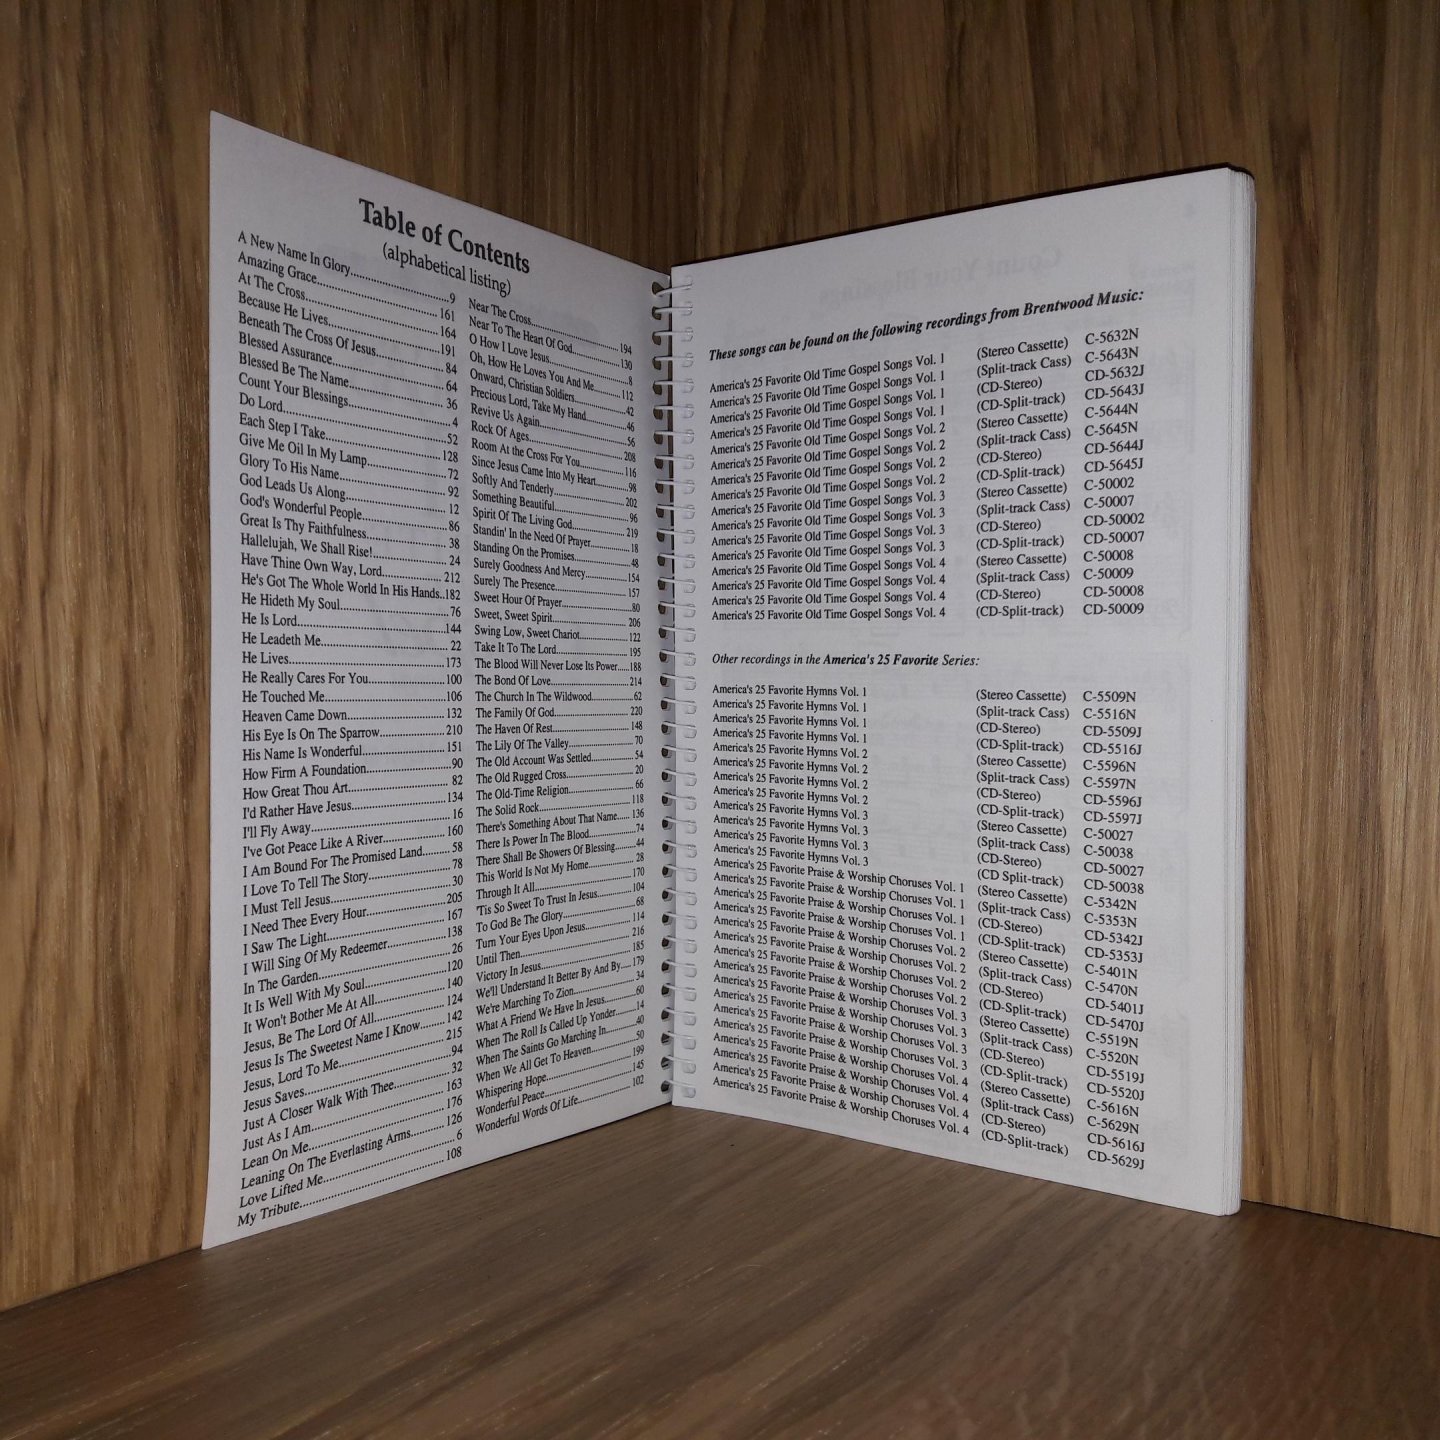 Table of Contents
(alphabetical listing)
A New Name In Glory...9
Amazing Grace...161
At The Cross...164
Because He Lives...191
Beneath The Cross Of Jesus...84
Blessed Assurance...64
Blessed Be The Name...36
Count Your Blessings...4
Do Lord...52
Each Step I Take...128
Give Me Oil In My Lamp...72
Glory To His Name...92
God Leads Us Along...12
God's Wonderful People...86
Great Is Thy Faithfulness...38
Hallelujah, We Shall Rise!...24
Have Thine Own Way, Lord...212
He's Got The Whole World In His Hands..182
He Hideth My Soul...76
He Is Lord...144
He Leadeth Me...22
He Lives...173
He Really Cares For You...100
He Touched Me...106
Heaven Came Down...132
His Eye Is On The Sparrow...210
His Name Is Wonderful...151
How Firm A Foundation...90
How Great Thou Art...82
I'd Rather Have Jesus...134
I'll Fly Away...16
I've Got Peace Like A River...160
I Am Bound For The Promised Land...58
I Love To Tell The Story...78
I Must Tell Jesus...30
I Need Thee Every Hour...205
I Saw The Light...167
I Will Sing Of My Redeemer...138
In The Garden...26
It Is Well With My Soul...120
It Won't Bother Me At All...140
Jesus, Be The Lord Of All...124
Jesus Is The Sweetest Name I Know...142
Jesus, Lord To Me...215
Jesus Saves...94
Just A Closer Walk With Thee...32
Just As I Am...163
Lean On Me...176
Leaning On The Everlasting Arms...126
Love Lifted Me...6
My Tribute...108
Near The Cross...194
Near To The Heart Of God...130
O How I Love Jesus...8
Oh, How He Loves You And Me...112
Onward, Christian Soldiers...42
Precious Lord, Take My Hand...46
Revive Us Again...56
Rock Of Ages...208
Room At the Cross For You...116
Since Jesus Came Into My Heart...98
Softly And Tenderly...202
Something Beautiful...96
Spirit Of The Living God...219
Standin' In the Need Of Prayer...18
Standing On the Promises...48
Surely Goodness And Mercy...154
Surely The Presence...157
Sweet Hour Of Prayer...80
Sweet, Sweet Spirit...206
Swing Low, Sweet Chariot...122
Take It To The Lord...195
The Blood Will Never Lose Its Power...188
The Bond Of Love...214
The Church In The Wildwood...62
The Family Of God...220
The Haven Of Rest...148
The Lily Of The Valley...70
The Old Account Was Settled...54
The Old Rugged Cross...20
The Old-Time Religion...66
The Solid Rock...118
There's Something About That Name...136
There Is Power In The Blood...74
There Shall Be Showers Of Blessing...44
This World Is Not My Home...28
Through It All...170
'Tis So Sweet To Trust In Jesus...104
To God Be The Glory...68
Turn Your Eyes Upon Jesus...114
Until Then...216
Victory In Jesus...185
We'll Understand It Better By And By...179
We're Marching To Zion...34
What A Friend We Have In Jesus...60
When The Roll Is Called Up Yonder...14
When The Saints Go Marching In...40
When We All Get To Heaven...50
Whispering Hope...199
Wonderful Peace...145
Wonderful Words Of Life...102
These songs can be found on the following recordings from Brentwood Music:
America's 25 Favorite Old Time Gospel Songs Vol. 1 (Stereo Cassette) C-5632N
America's 25 Favorite Old Time Gospel Songs Vol. 1 (Split-track Cass) C-5643N
America's 25 Favorite Old Time Gospel Songs Vol. 1 (CD-Stereo) CD-5632J
America's 25 Favorite Old Time Gospel Songs Vol. 1 (CD-Split-track) CD-5643J
America's 25 Favorite Old Time Gospel Songs Vol. 2 (Stereo Cassette) C-5644N
America's 25 Favorite Old Time Gospel Songs Vol. 2 (Split-track Cass) C-5645N
America's 25 Favorite Old Time Gospel Songs Vol. 2 (CD-Stereo) CD-5644J
America's 25 Favorite Old Time Gospel Songs Vol. 2 (CD-Split-track) CD-5645J
America's 25 Favorite Old Time Gospel Songs Vol. 3 (Stereo Cassette) C-50002
America's 25 Favorite Old Time Gospel Songs Vol. 3 (Split-track Cass) C-50007
America's 25 Favorite Old Time Gospel Songs Vol. 3 (CD-Stereo) CD-50002
America's 25 Favorite Old Time Gospel Songs Vol. 3 (CD-Split-track) CD-50007
America's 25 Favorite Old Time Gospel Songs Vol. 4 (Stereo Cassette) C-50008
America's 25 Favorite Old Time Gospel Songs Vol. 4 (Split-track Cass) C-50009
America's 25 Favorite Old Time Gospel Songs Vol. 4 (CD-Stereo) CD-50008
America's 25 Favorite Old Time Gospel Songs Vol. 4 (CD-Split-track) CD-50009
Other recordings in the America's 25 Favorite Series:
America's 25 Favorite Hymns Vol. 1 (Stereo Cassette) C-5509N
America's 25 Favorite Hymns Vol. 1 (Split-track Cass) C-5516N
America's 25 Favorite Hymns Vol. 1 (CD-Stereo) CD-5509J
America's 25 Favorite Hymns Vol. 1 (CD-Split-track) CD-5516J
America's 25 Favorite Hymns Vol. 2 (Stereo Cassette) C-5596N
America's 25 Favorite Hymns Vol. 2 (Split-track Cass) C-5597N
America's 25 Favorite Hymns Vol. 2 (CD-Stereo) CD-5596J
America's 25 Favorite Hymns Vol. 2 (CD-Split-track) CD-5597J
America's 25 Favorite Hymns Vol. 3 (Stereo Cassette) C-50027
America's 25 Favorite Hymns Vol. 3 (Split-track Cass) C-50038
America's 25 Favorite Hymns Vol. 3 (CD-Stereo) CD-50027
America's 25 Favorite Hymns Vol. 3 (CD Split-track) CD-50038
America's 25 Favorite Praise & Worship Choruses Vol. 1 (Stereo Cassette) C-5342N
America's 25 Favorite Praise & Worship Choruses Vol. 1 (Split-track Cass) C-5353N
America's 25 Favorite Praise & Worship Choruses Vol. 1 (CD-Stereo) CD-5342J
America's 25 Favorite Praise & Worship Choruses Vol. 1 (CD-Split-track) CD-5353J
America's 25 Favorite Praise & Worship Choruses Vol. 2 (Stereo Cassette) C-5401N
America's 25 Favorite Praise & Worship Choruses Vol. 2 (Split-track Cass) C-5470N
America's 25 Favorite Praise & Worship Choruses Vol. 2 (CD-Stereo) CD-5401J
America's 25 Favorite Praise & Worship Choruses Vol. 2 (CD-Split-track) CD-5470J
America's 25 Favorite Praise & Worship Choruses Vol. 3 (Stereo Cassette) C-5519N
America's 25 Favorite Praise & Worship Choruses Vol. 3 (Split-track Cass) C-5520N
America's 25 Favorite Praise & Worship Choruses Vol. 3 (CD-Stereo) CD-5519J
America's 25 Favorite Praise & Worship Choruses Vol. 3 (CD-Split-track) CD-5520J
America's 25 Favorite Praise & Worship Choruses Vol. 4 (Stereo Cassette) C-5616N
America's 25 Favorite Praise & Worship Choruses Vol. 4 (Split-track Cass) C-5629N
America's 25 Favorite Praise & Worship Choruses Vol. 4 (CD-Stereo) CD-5616J
America's 25 Favorite Praise & Worship Choruses Vol. 4 (CD-Split-track) CD-5629J